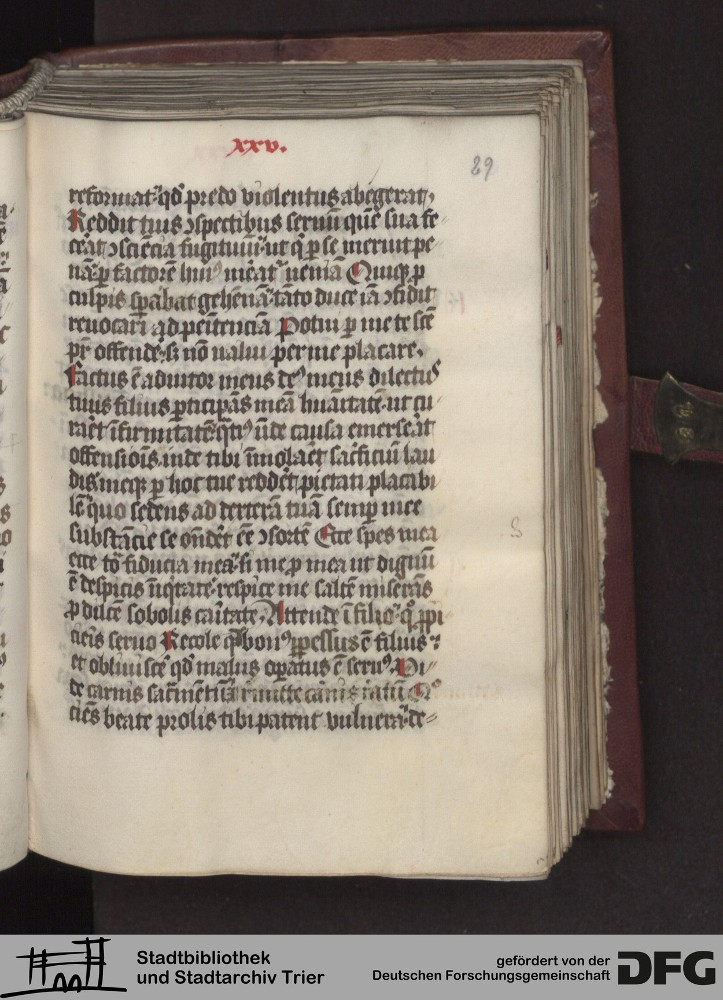 xxv.
29
reformat qd' predo violentus abegerat,
Reddit tuis ɔspectibus seruū quē sua fe
cerat ɔsciēcia fugitiuū ut q̄ p se meruit pe
nā p factorē hui⁹ mēat ueniā Quiqꝫ p
culpis spabat gehennā tāto duce iā ɔfidit
reuocari ad penitenciā Potui p me te scē
pr̄ offende si nō ualui per me placare.
Factus ē adiutor meus de⁹ meus dilectus
tuus filius pticipās meā huāitatē ut cu
raret īfirmitatē qti⁹ ūde causa emerserat
offensiōis inde tibi īmolaret sacficiū lau
dis meqꝫ p hoc tue redderet pietati placabi
lē quo sedens ad dexterā tuā semp mee
substācie se ōnderet eē ɔsortē Ecce spes mea
ecce tō fiducia mea si me p mea ut dignū
ē despicis īiqtate respice me saltē miserās
p dilcē sobolis caritate Attende ī filio q° ppi
cieris seruo
Recole q bon⁹ ppessus ē filius
et obliuiscē qd' malus opatus ē seru⁹ Vi
de carnis sacmētū ⁊ remitte carnis reatū
cies beate prolis tibi patent vulnera de
S
Stadtbibliothek
und Stadtarchiv Trier
gefördert von der
Deutschen Forschungsgemeinschaft
DFG